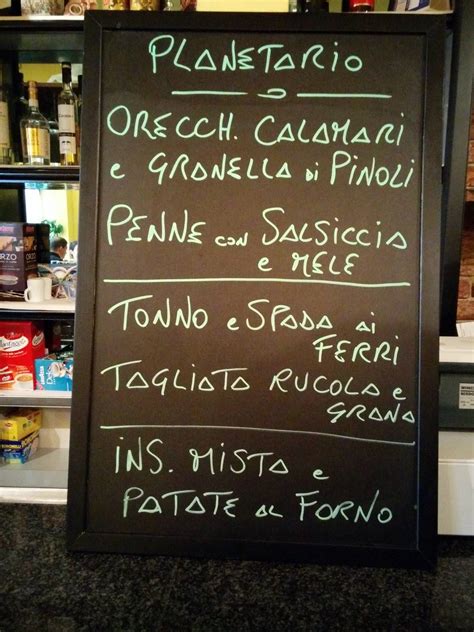 PLANETARIO
ORECCH. CALAMARI
e GRANELLA di PINOLI
PENNE con SALSICCIA
e MELE
TONNO e SPADA ai
FERRI
TAGLIATA RUCOLA e
GRANA
INS. MISTA e
PATATE al FORNO
ORZO